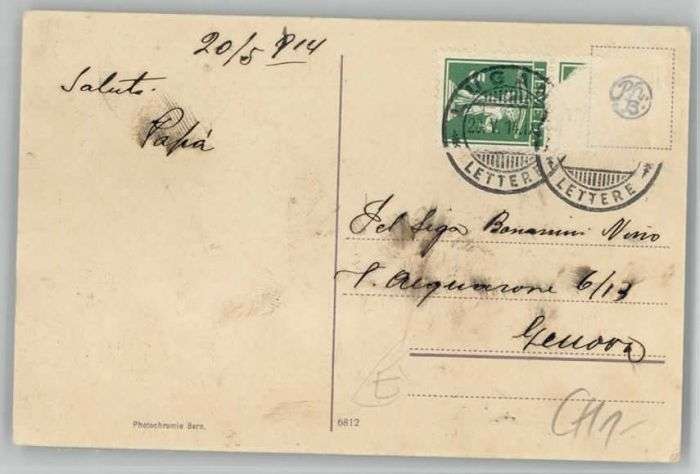 20/5 914
Saluti.
Papá
UGA
LETTERE
LETTERE
Ph.
B.
Bonamini Nino
Acquarone 6/13
Genova
Photochromie Bern.
6812